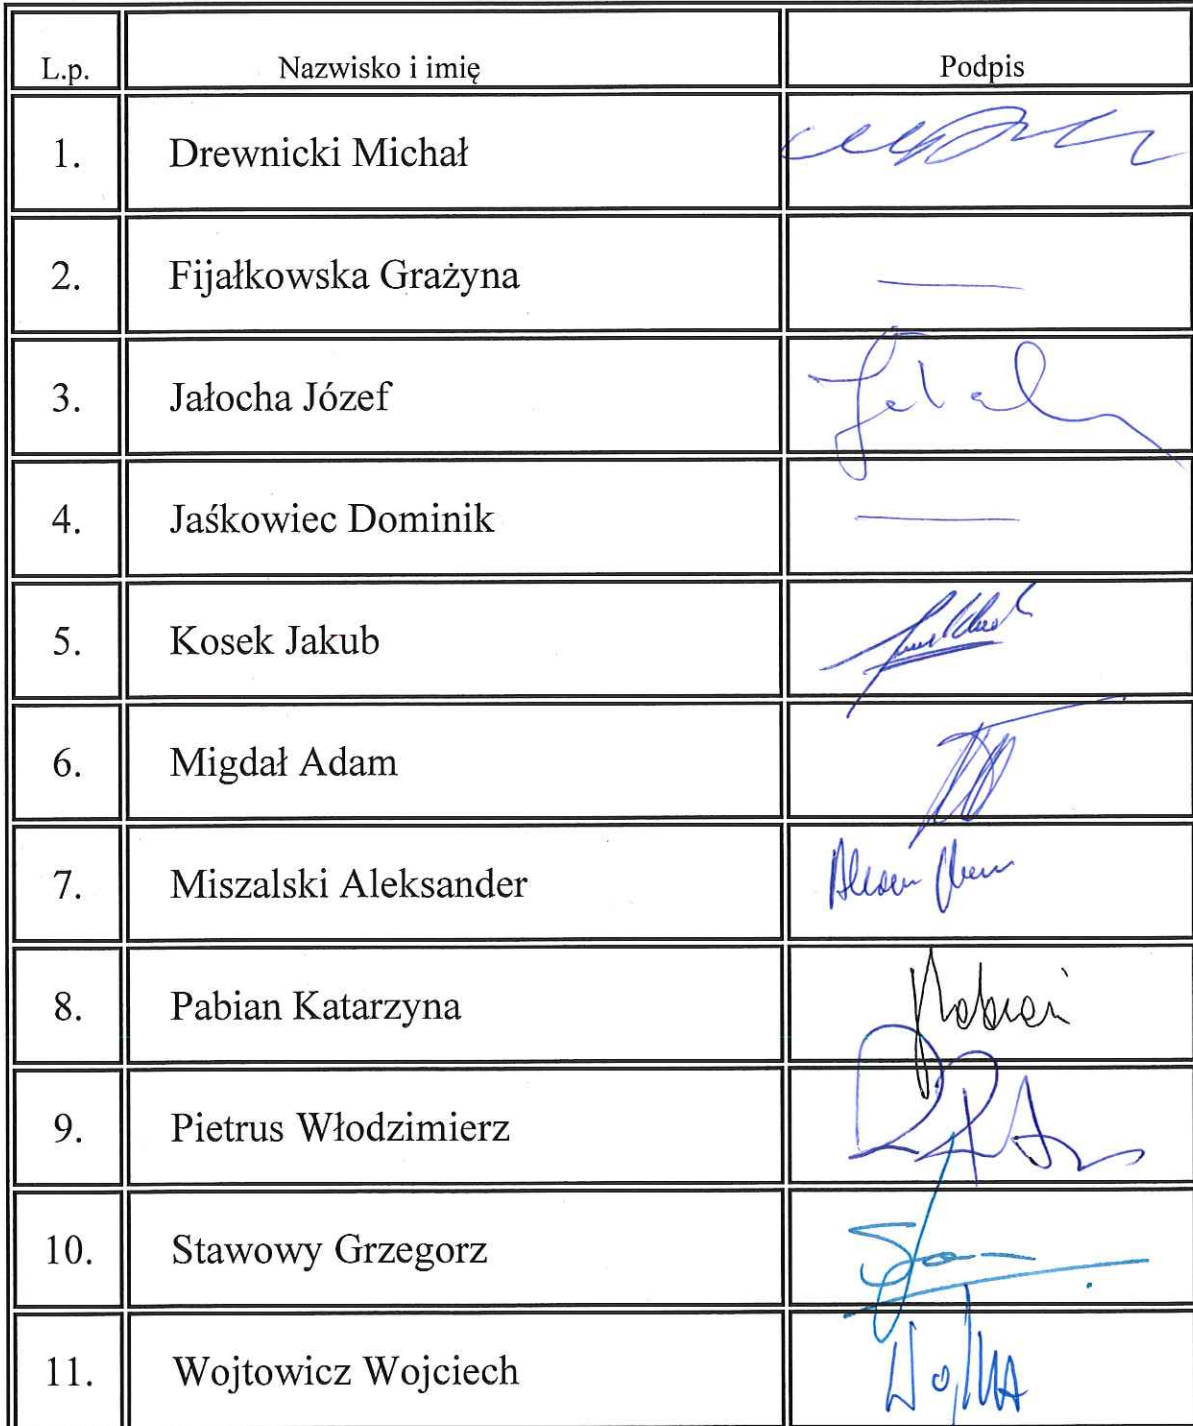 L.p. Nazwisko i imię Podpis
1. Drewnicki Michał
2. Fijałkowska Grażyna —
3. Jałocha Józef
4. Jaśkowiec Dominik —
5. Kosek Jakub
6. Migdał Adam
7. Miszalski Aleksander
8. Pabian Katarzyna Pabian
9. Pietrus Włodzimierz
10. Stawowy Grzegorz
11. Wojtowicz Wojciech